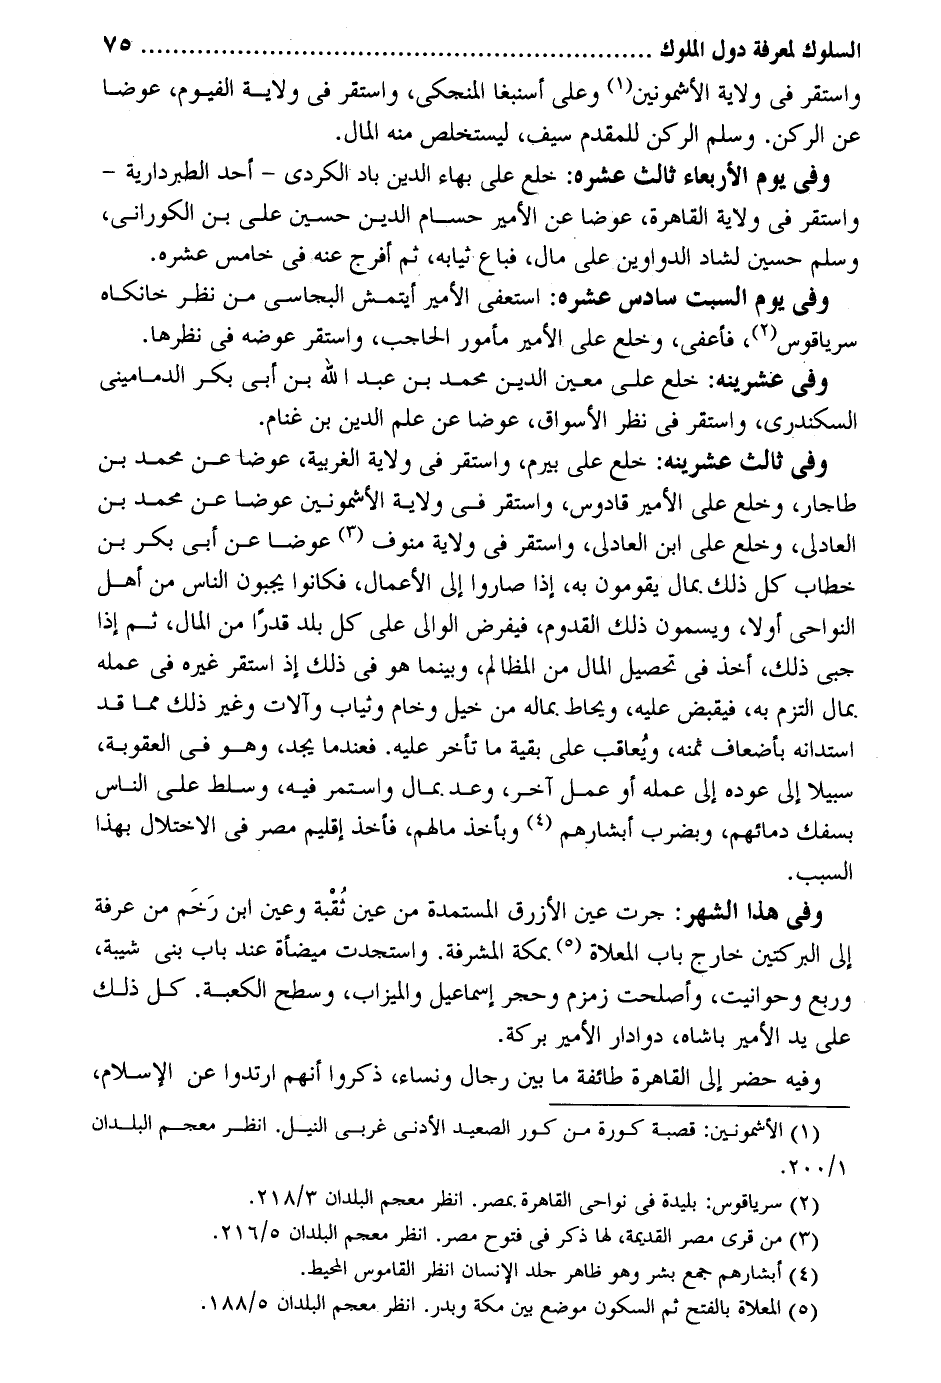 السلوك لمعرفة دول الملوك ................................................................ ٧٥
واستقر فى ولاية الأشمونين(١) وعلى أسنبغا المنجكى، واستقر فى ولاية الفيوم، عوضا
عن الركن. وسلم الركن للمقدم سيف، ليستخلص منه المال.
وفى يوم الأربعاء ثالث عشره: خلع على بهاء الدين باد الكردى - أحد الطبردارية -
واستقر فى ولاية القاهرة، عوضا عن الأمير حسام الدين حسين على بن الكورانى،
وسلم حسين لشاد الدواوين على مال، فباع ثيابه، ثم أفرج عنه فى خامس عشره.
وفى يوم السبت سادس عشره: استعفى الأمير أيتمش البجاسى من نظر خانكاه
سرياقوس(٢)، فأعفى، وخلع على الأمير مأمور الحاجب، واستقر عوضه فى نظرها.
وفى عشرينه: خلع على معين الدين محمد بن عبد الله بن أبى بكر الدمامينى
السكندرى، واستقر فى نظر الأسواق، عوضا عن علم الدين بن غنام.
وفى ثالث عشرينه: خلع على بيرم، واستقر فى ولاية الغربية، عوضا عن محمد بن
طاجار، وخلع على الأمير قادوس، واستقر فى ولاية الأشمونين عوضا عن محمد بن
العادلى، وخلع على ابن العادلى، واستقر فى ولاية منوف (٣) عوضا عن أبى بكر بن
خطاب كل ذلك بمال يقومون به، إذا صاروا إلى الأعمال، فكانوا يجبون الناس من أهل
النواحى أولا، ويسمون ذلك القدوم، فيفرض الوالى على كل بلد قدرًا من المال، ثم إذا
جبى ذلك، أخذ فى تحصيل المال من المظالم، وبينما هو فى ذلك إذ استقر غيره فى عمله
بمال التزم به، فيقبض عليه، ويحاط بماله من خيل وخام وثياب وآلات وغير ذلك مما قد
استدانه بأضعاف ثمنه، ويُعاقب على بقية ما تأخر عليه. فعندما يجد، وهو فى العقوبة،
سبيلا إلى عوده إلى عمله أو عمل آخر، وعد بمال واستمر فيه، وسلط على الناس
بسفك دمائهم، وبضرب أبشارهم (٤) وبأخذ مالهم، فأخذ إقليم مصر فى الاختلال بهذا
السبب.
وفى هذا الشهر: جرت عين الأزرق المستمدة من عين ثُقْبة وعين ابن رَخَم من عرفة
إلى البركتين خارج باب المعلاة (٥) بمكة المشرفة. واستجدت ميضأة عند باب بنى شيبة،
وربع وحوانيت، وأصلحت زمزم وحجر إسماعيل والميزاب، وسطح الكعبة. كل ذلك
على يد الأمير باشاه، دوادار الأمير بركة.
وفيه حضر إلى القاهرة طائفة ما بين رجال ونساء، ذكروا أنهم ارتدوا عن الإسلام،
(١) الأشمونين: قصبة كورة من كور الصعيد الأدنى غربى النيل. انظر معجم البلدان
٢٠٠/١.
(٢) سرياقوس: بليدة فى نواحى القاهرة بمصر. انظر معجم البلدان ٢١٨/٣.
(٣) من قرى مصر القديمة، لها ذكر فى فتوح مصر. انظر معجم البلدان ٢١٦/٥.
(٤) أبشارهم جمع بشر وهو ظاهر جلد الإنسان انظر القاموس المحيط.
(٥) المعلاة بالفتح ثم السكون موضع بين مكة وبدر. انظر معجم البلدان ١٨٨/٥.